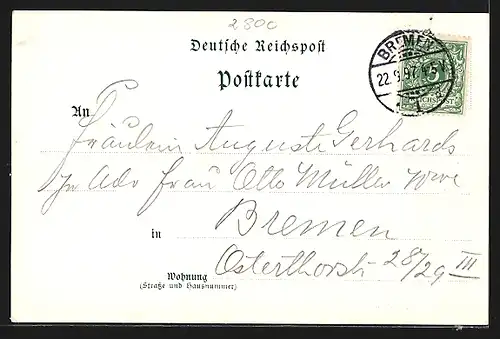 2800
Deutsche Reichspost
Postkarte
BREMEN
22.9.97
REICHSPOST
An
Fräulein Auguste Gerhards
pr Adr Frau Otto Müller Wwe
in Bremen
Osterthorstr 28/29 III
Wohnung
(Straße und Hausnummer)